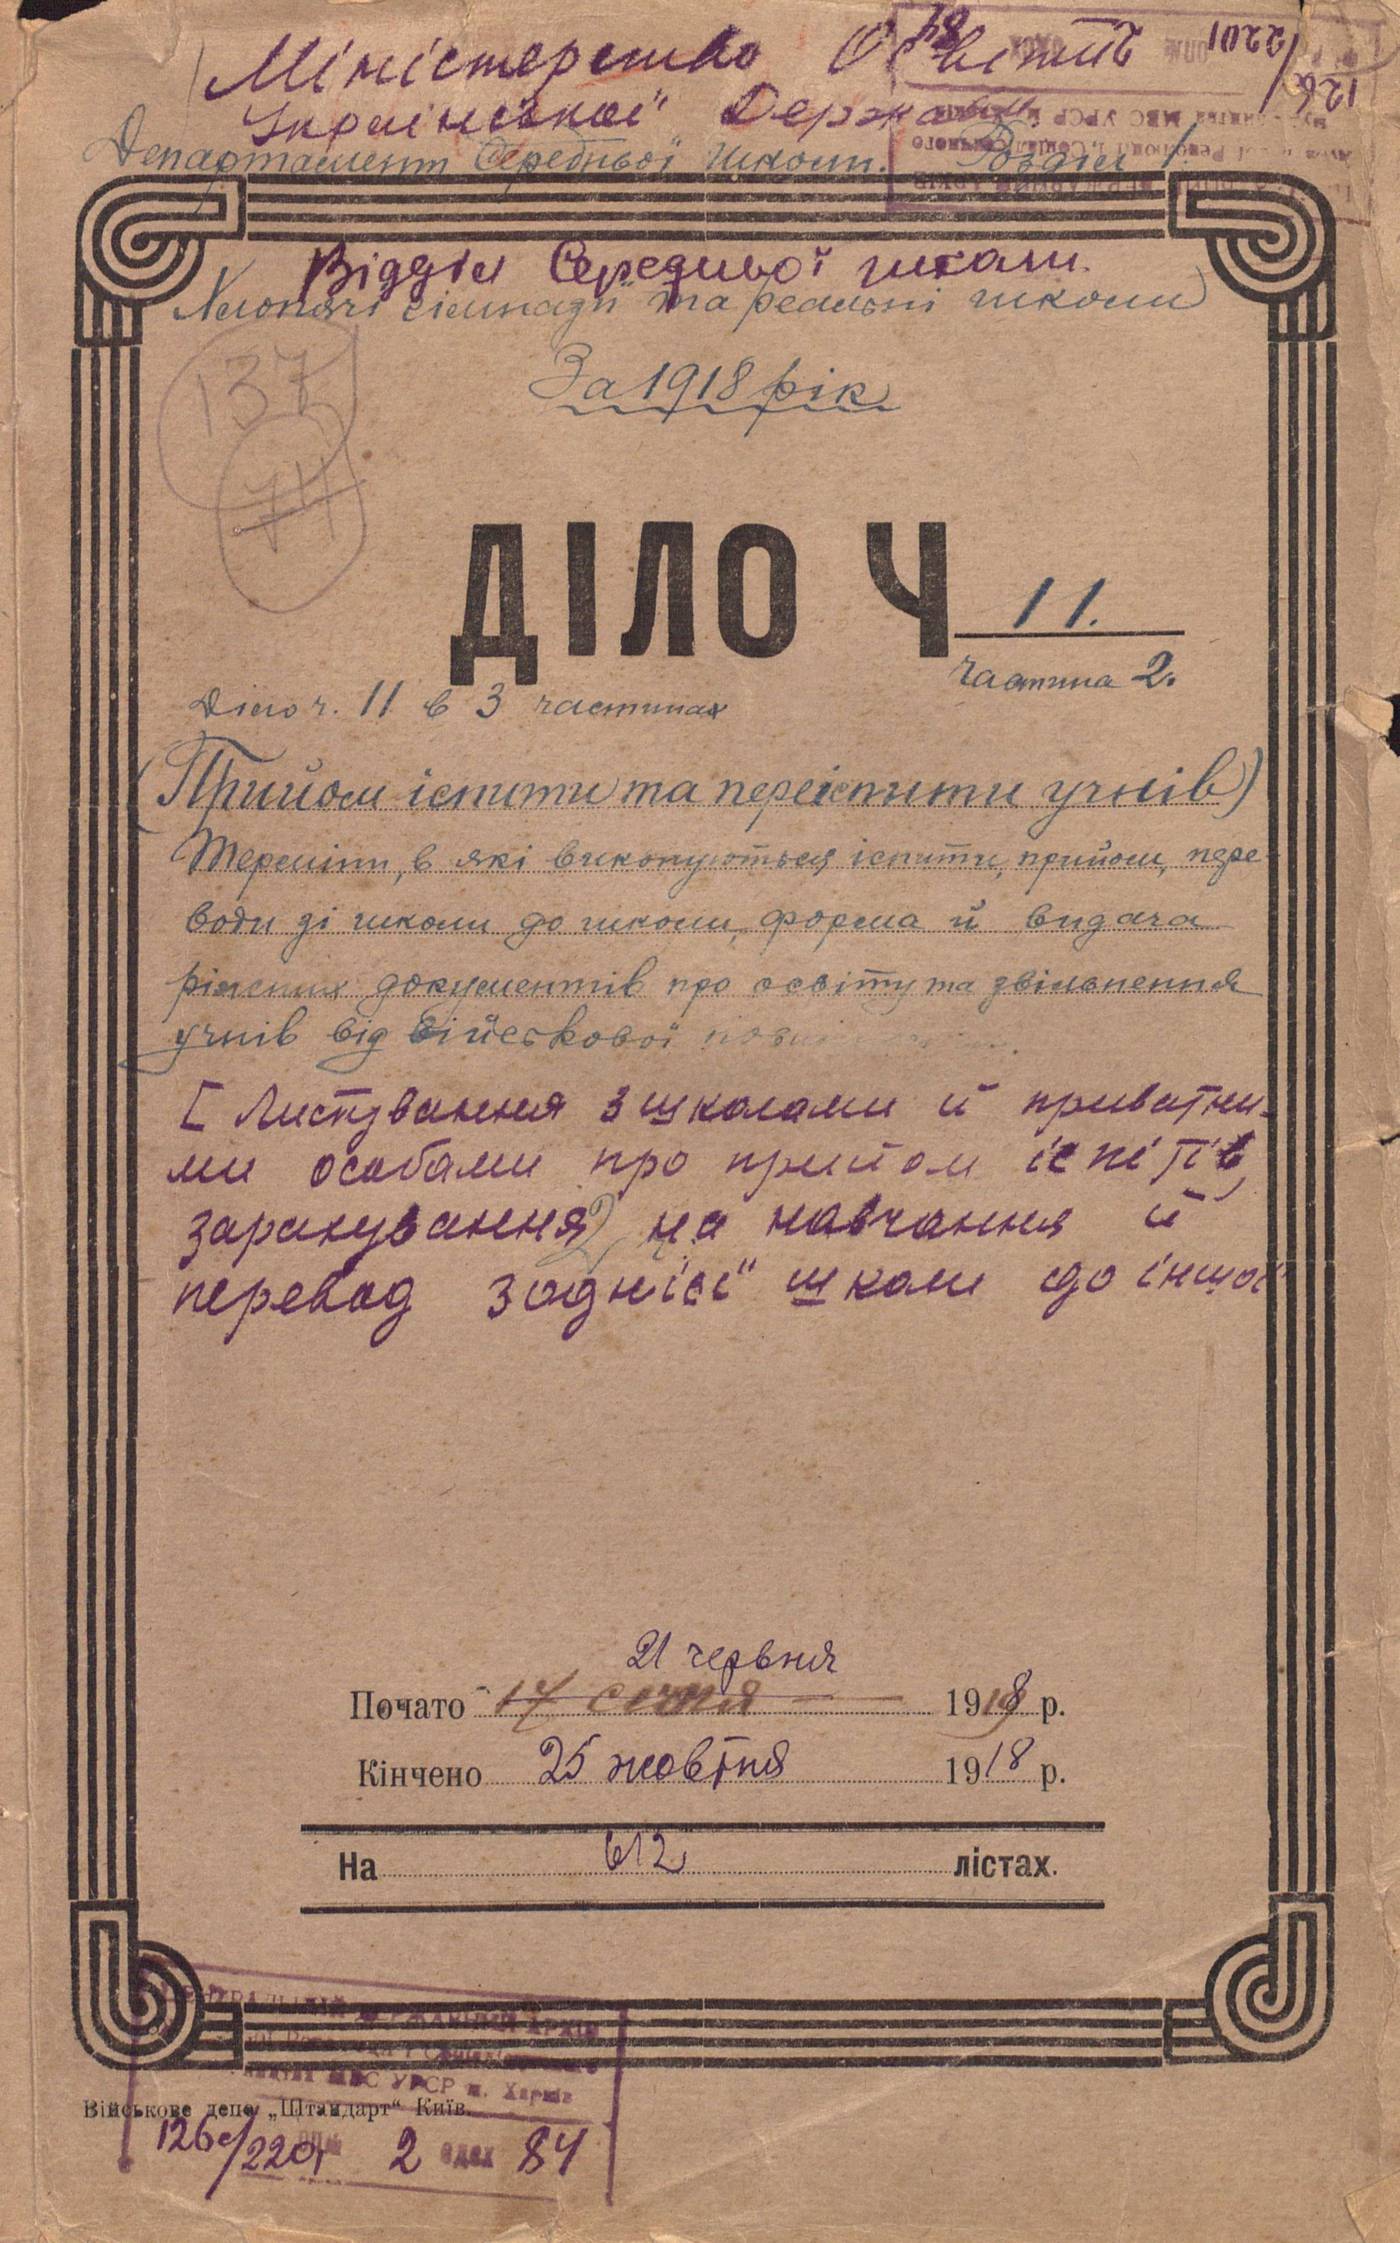 Міністерство Освіти
Української Держави
Департамент Середньої Школи. Розділ 1
Відділ Середньої школи.
Хлопячі гімназії та реальні школи
За 1918 рік
137
74
ДІЛО Ч 11.
частина 2.
Діло ч. 11 в 3 частинах
(Прийом іспити та переіспити учнів)
Терміни, в які виконуються іспити, прийом, пере-
води зі школи до школи, форма й видача
ріжних документів про освіту та звільнення
учнів від військової
[Листування з школами й приватни-
ми особами про прийом іспітів,
зарахування на навчання й
перевод з однієї школи до іншої
21 червня
Почато 17 січня 1918 р.
Кінчено 25 жовтня 1918 р.
На 612 лістах.
ЦЕНТРАЛЬНИЙ ДЕРЖАВНИЙ АРХІВ
МВС УРСР м. Харків
Військове депо „Штандарт“ Київ.
2201 2 одзх 84